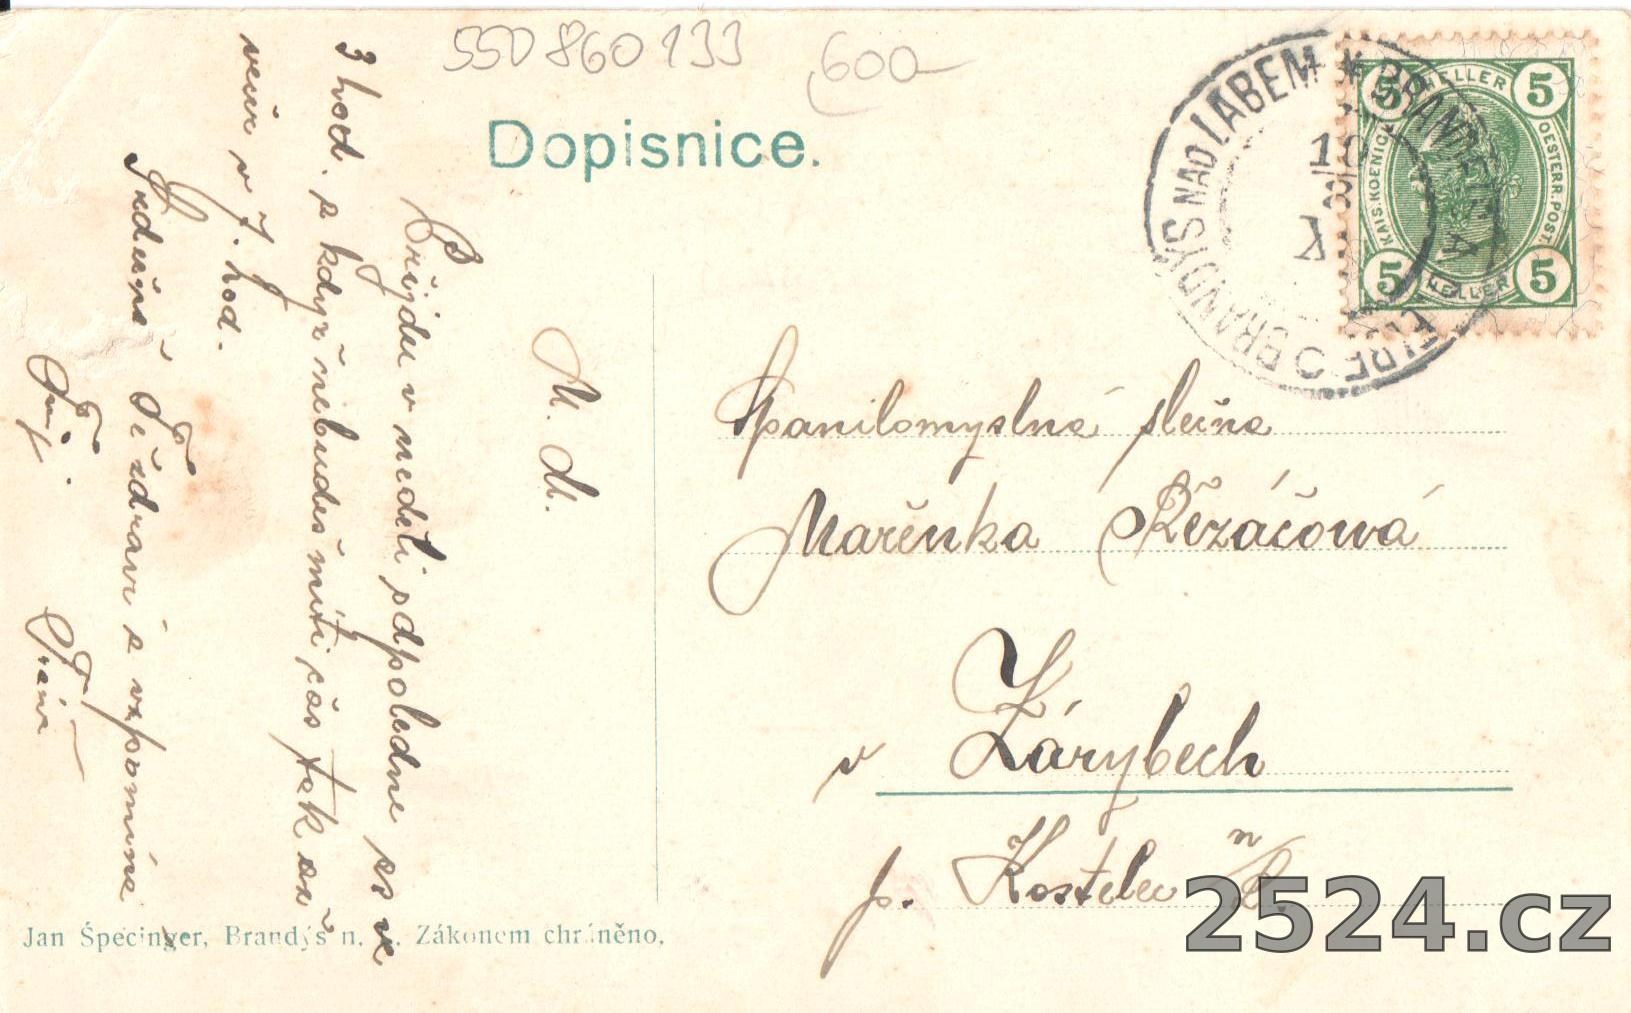 550 860 133
600
Dopisnice.
* BRANDEIS A. ELBE * BRANDÝS NAD LABEM
10
K
HELLER
5 5
KAIS. KOENIGL.
OESTERR. POST.
5 5
HELLER
M. M.
Přijdu v neděli odpoledne as ve
3 hod. a když nebudeš míti čas tak až
večer v 7. hod.
Srdečně Tě zdraví a vzpomíná
Tvůj.
Spanilomyslná slečna
Mařenka Řezáčová
v Zárybech
p. Kostelec n
Jan Špecinger, Brandýs n. L. Zákonem chráněno.
2524.cz